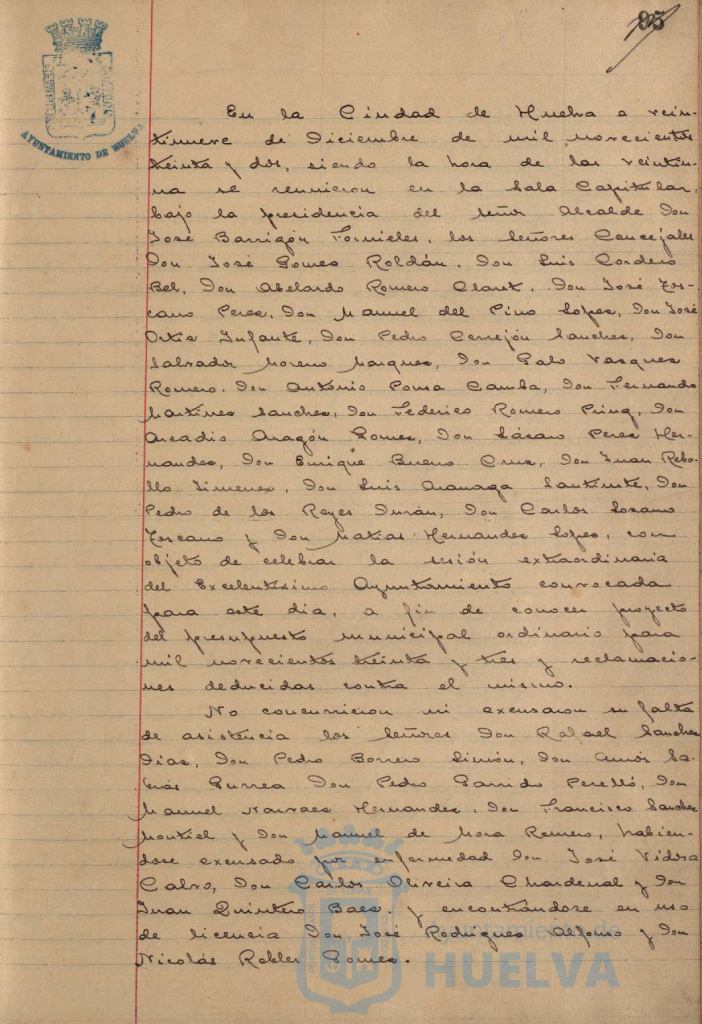 95
AYUNTAMIENTO DE HUELVA
En la Ciudad de Huelva a vein-
tinueve de Diciembre de mil novecientos
treinta y dos, siendo la hora de las veintiu-
na se reunieron en la Sala Capitular,
bajo la presidencia del señor Alcalde Don
José Barrigón Fornieles, los Señores Concejales
Don José Gomes Roldán, Don Luis Cordero
Bel, Don Abelardo Romero Claret, Don José Tos-
cano Peres, Don Manuel del Pino Lopes, Don José
Ortis Infante, Don Pedro Cerrejón Sanches, Don
Salvador Moreno Marques, Don Galo Vasques
Romero, Don Antonio Pousa Camba, Don Fernando
Martines Sanches, Don Federico Romero Pring, Don
Arcadio Aragón Gomes, Don Lásaro Peres Her-
nandes, Don Enrique Bueno Crus, Don Juan Rebo-
llo Jimenes, Don Luis Don
Pedro de los Reyes Durán, Don Carlos Losano
Toscano y Don Matías Hernandes Lopes, con
objeto de celebrar la sesión extraordinaria
del Excelentísimo Ayuntamiento convocada
para este dia, a fin de conocer proyecto
del presupuesto municipal ordinario para
mil novecientos treinta y tres y reclamacio-
nes deducidas contra el mismo.
No concurrieron ni excusaron su falta
de asistencia los Señores Don Rafael Sanches
Dias, Don Pedro Borrero Limón, Don Amós Sa-
brás Gurrea Don Pedro Garrido Perelló, Don
Manuel Narvaes Hernandes, Don Francisco Sanches
Montiel y Don Manuel de Mora Romero, habien-
dose excusado por enfermedad Don José Vidosa
Calvo, Don Carlos Oliveira Chardenal y Don
Juan Quintero Baes. y encontrandose en uso
de licencia Don José Rodrigues Alfonso y Don
Nicolás Robles Gomes.
Ayuntamiento de
HUELVA